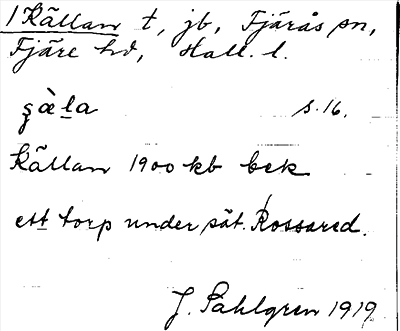 1 Källan t, jb, Fjärås sn,
Fjäre hd, Hall. l.
s. 16.
Källan 1900 kb bek
ett torp under sät. Rossared.
J. Sahlgren 1919